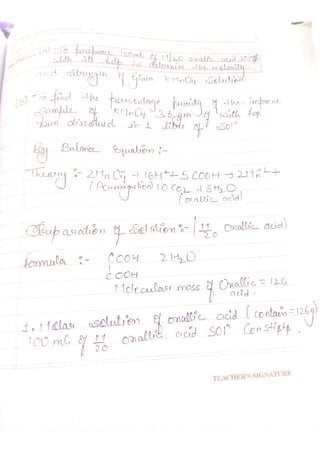 (a) To prepare 100ml of M/20 oxalic acid solⁿ
with its help to determine the molarity
and strength of given KMnO4 Solution
(b) To find the percentage purity of the impure
sample of KMnO4 3.5 gm of with has
been dissolved in 1 litre of solⁿ
Balance Equation :-
Theory :- 2MnO4 + 16H+ + 5 COOH → 2Mn2+ +
(Permagnation) 10 CO2 + 8H2O
(oxallic acid)
Preparation of Solution :- (M/20 Oxallic acid)
formula :- COOH 2H2O
COOH
Molecular mass of Oxallic = 126
acid.
1. Molar solution of oxallic acid (contain = 126g)
100 mL of M/20 oxallic acid Solⁿ
TEACHER'S SIGNATURE